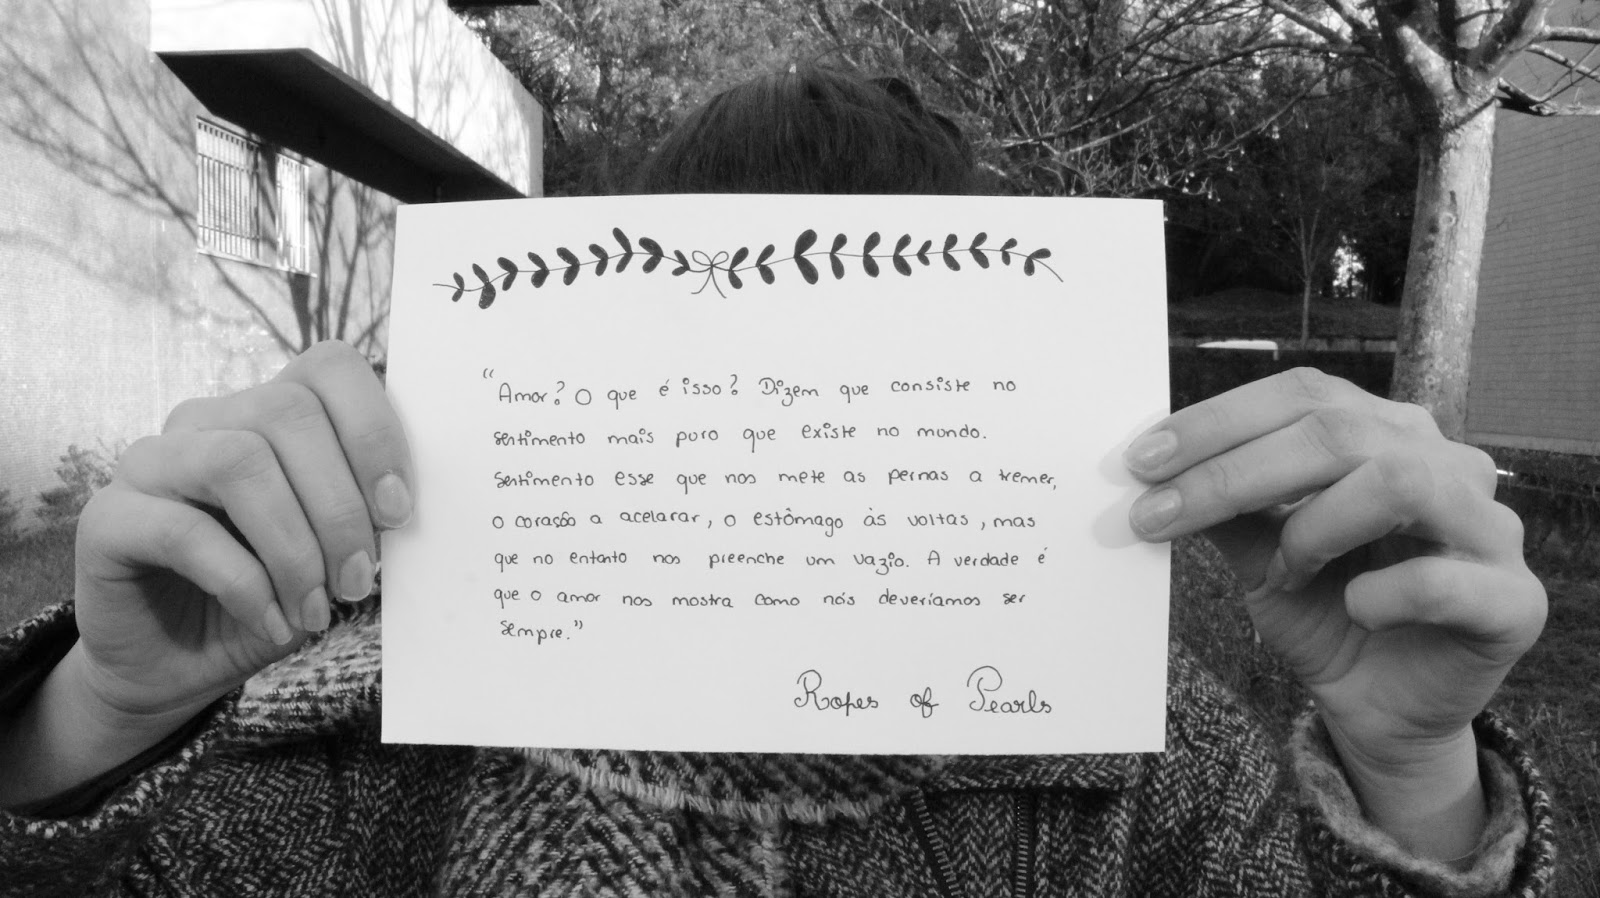 "Amor? O que é isso? Dizem que consiste no
sentimento mais puro que existe no mundo.
Sentimento esse que nos mete as pernas a tremer,
o coração a acelarar, o estômago às voltas, mas
que no entanto nos preenche um vazio. A verdade é
que o amor nos mostra como nós deveríamos ser
sempre."
Ropes of Pearls